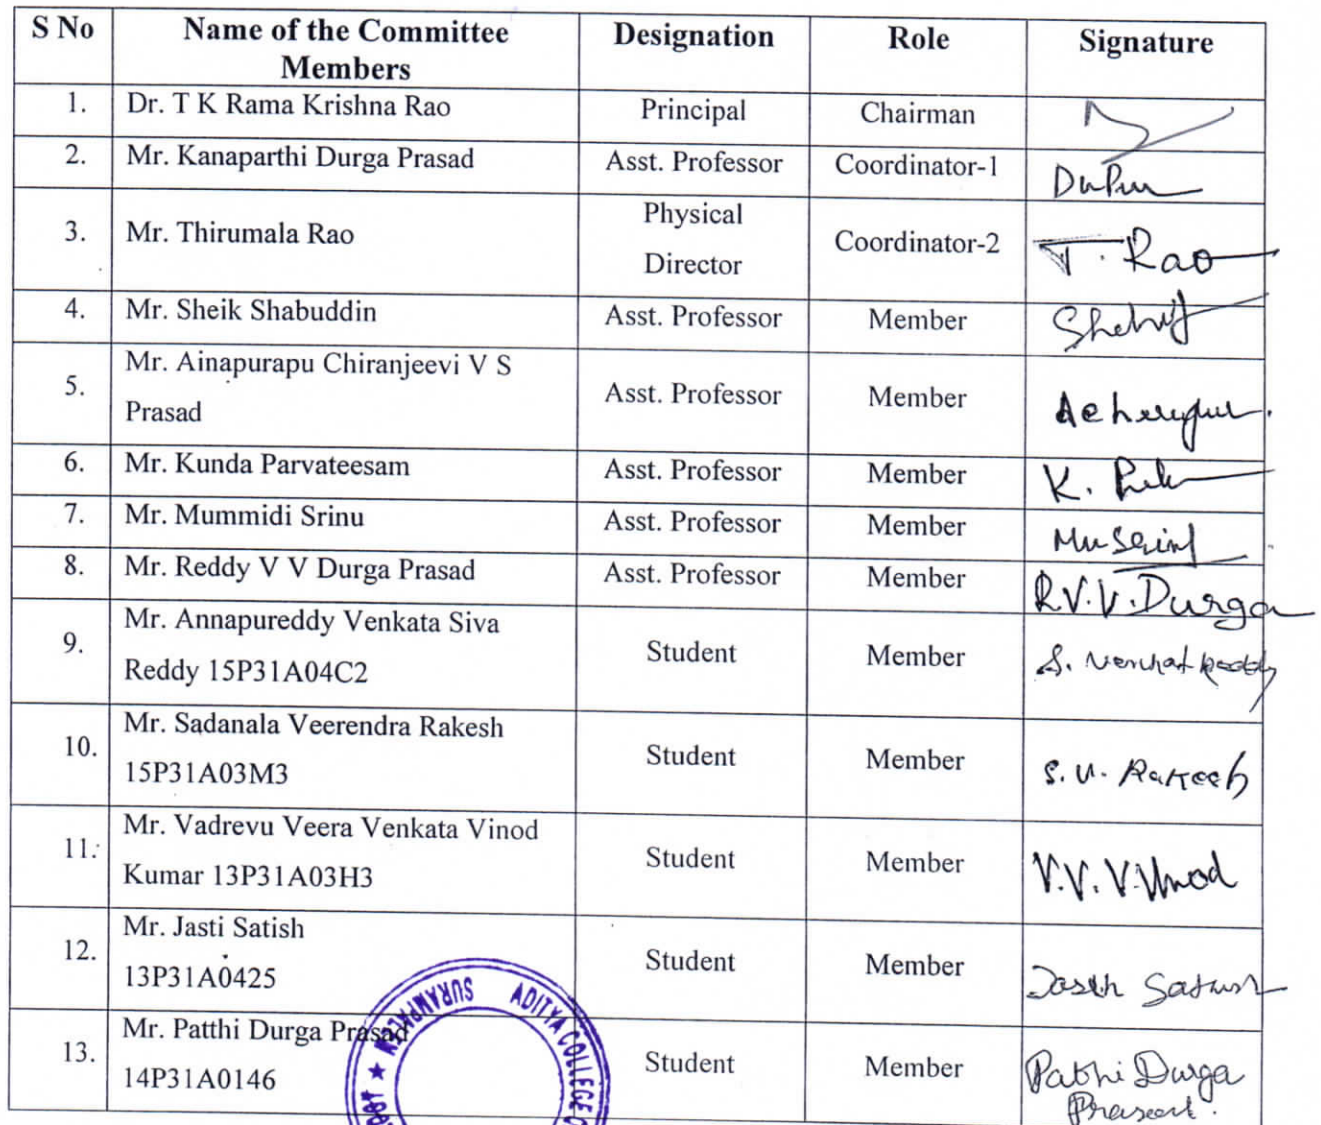 S No Name of the Committee Members Designation Role Signature
1. Dr. T K Rama Krishna Rao Principal Chairman
2. Mr. Kanaparthi Durga Prasad Asst. Professor Coordinator-1
3. Mr. Thirumala Rao Physical Director Coordinator-2 T. Rao
4. Mr. Sheik Shabuddin Asst. Professor Member
5. Mr. Ainapurapu Chiranjeevi V S Prasad Asst. Professor Member
6. Mr. Kunda Parvateesam Asst. Professor Member K.
7. Mr. Mummidi Srinu Asst. Professor Member
8. Mr. Reddy V V Durga Prasad Asst. Professor Member R.V.V.Durga
9. Mr. Annapureddy Venkata Siva Reddy 15P31A04C2 Student Member S. Venkat Reddy
10. Mr. Sadanala Veerendra Rakesh 15P31A03M3 Student Member S.V. Rakesh
11. Mr. Vadrevu Veera Venkata Vinod Kumar 13P31A03H3 Student Member V.V.V.Vinod
12. Mr. Jasti Satish 13P31A0425 Student Member Jasti Satish
13. Mr. Patthi Durga Prasad 14P31A0146 Student Member Patthi Durga Prasad.
SURAMPALEM ADITYA COLLEGE